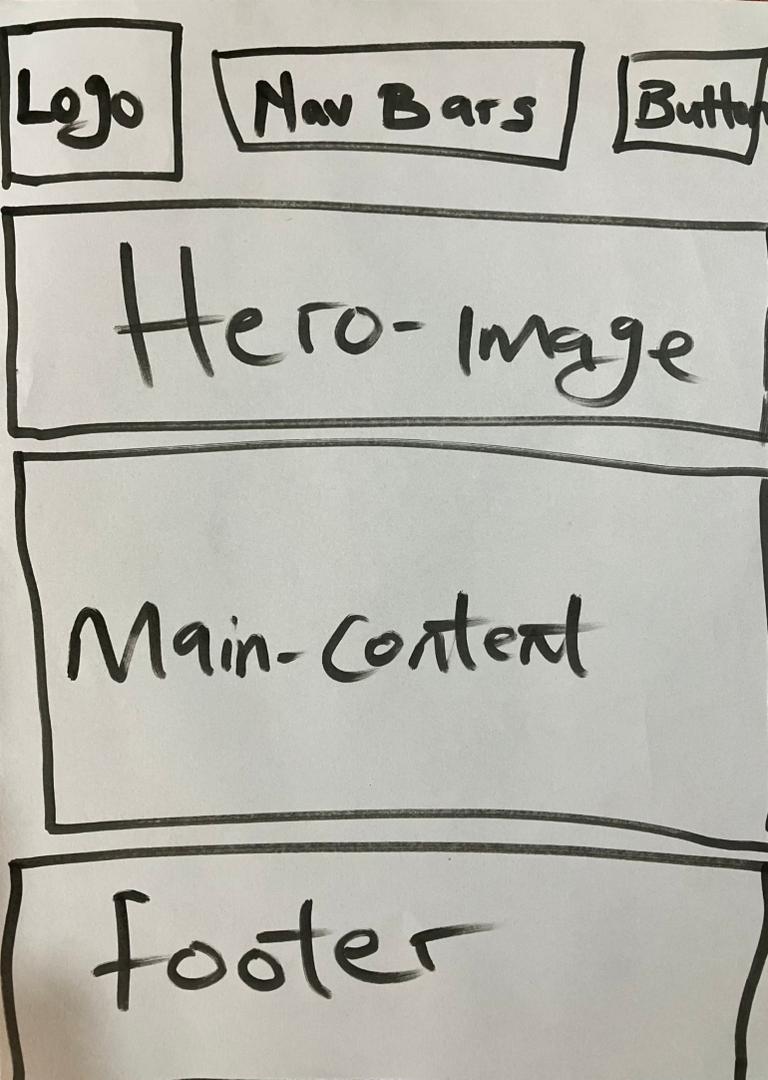 Logo
Nav Bars
Button
Hero-Image
Main-Content
Footer